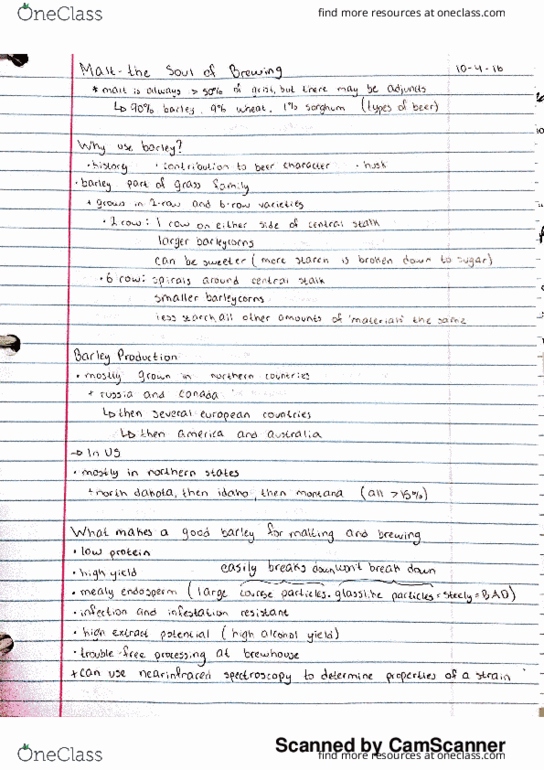 OneClass
find more resources at oneclass.com
Malt - the Soul of Brewing 10-4-16
* malt is always > 50% of grist, but there may be adjuncts
↳ 90% barley, 9% wheat, 1% sorghum (types of beer)
Why use barley?
• history • contribution to beer character • husk
• barley part of grass family
+ grows in 2-row and 6-row varieties
• 2 row: 1 row on either side of central stalk
larger barleycorns
can be sweeter (more starch is broken down to sugar)
• 6 row: spirals around central stalk
smaller barleycorns
less starch, all other amounts of 'materials' the same
Barley Production
• mostly grown in northern countries
* russia and canada
↳ then several european countries
↳ then america and australia
→ In US
• mostly in northern states
+ north dakota, then idaho, then montana (all >15%)
What makes a good barley for malting and brewing
• low protein
• high yield easily breaks down won't break down
• mealy endosperm (large course particles. glasslike particles = steely = BAD)
• infection and infestation resistant
• high extract potential (high alcohol yield)
• trouble-free processing at brewhouse
+ can use nearinfrared spectroscopy to determine properties of a strain
Scanned by CamScanner
OneClass
find more resources at oneclass.com